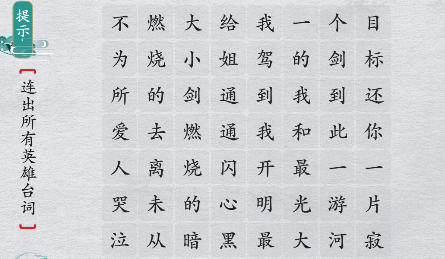 提示：
连出所有英雄台词
不燃大给我一个目
为烧小姐驾的剑标
所的剑通到我到还
爱去燃通我和此你
人离烧闪开最一一
哭未的心明光游片
泣从暗黑最大河寂